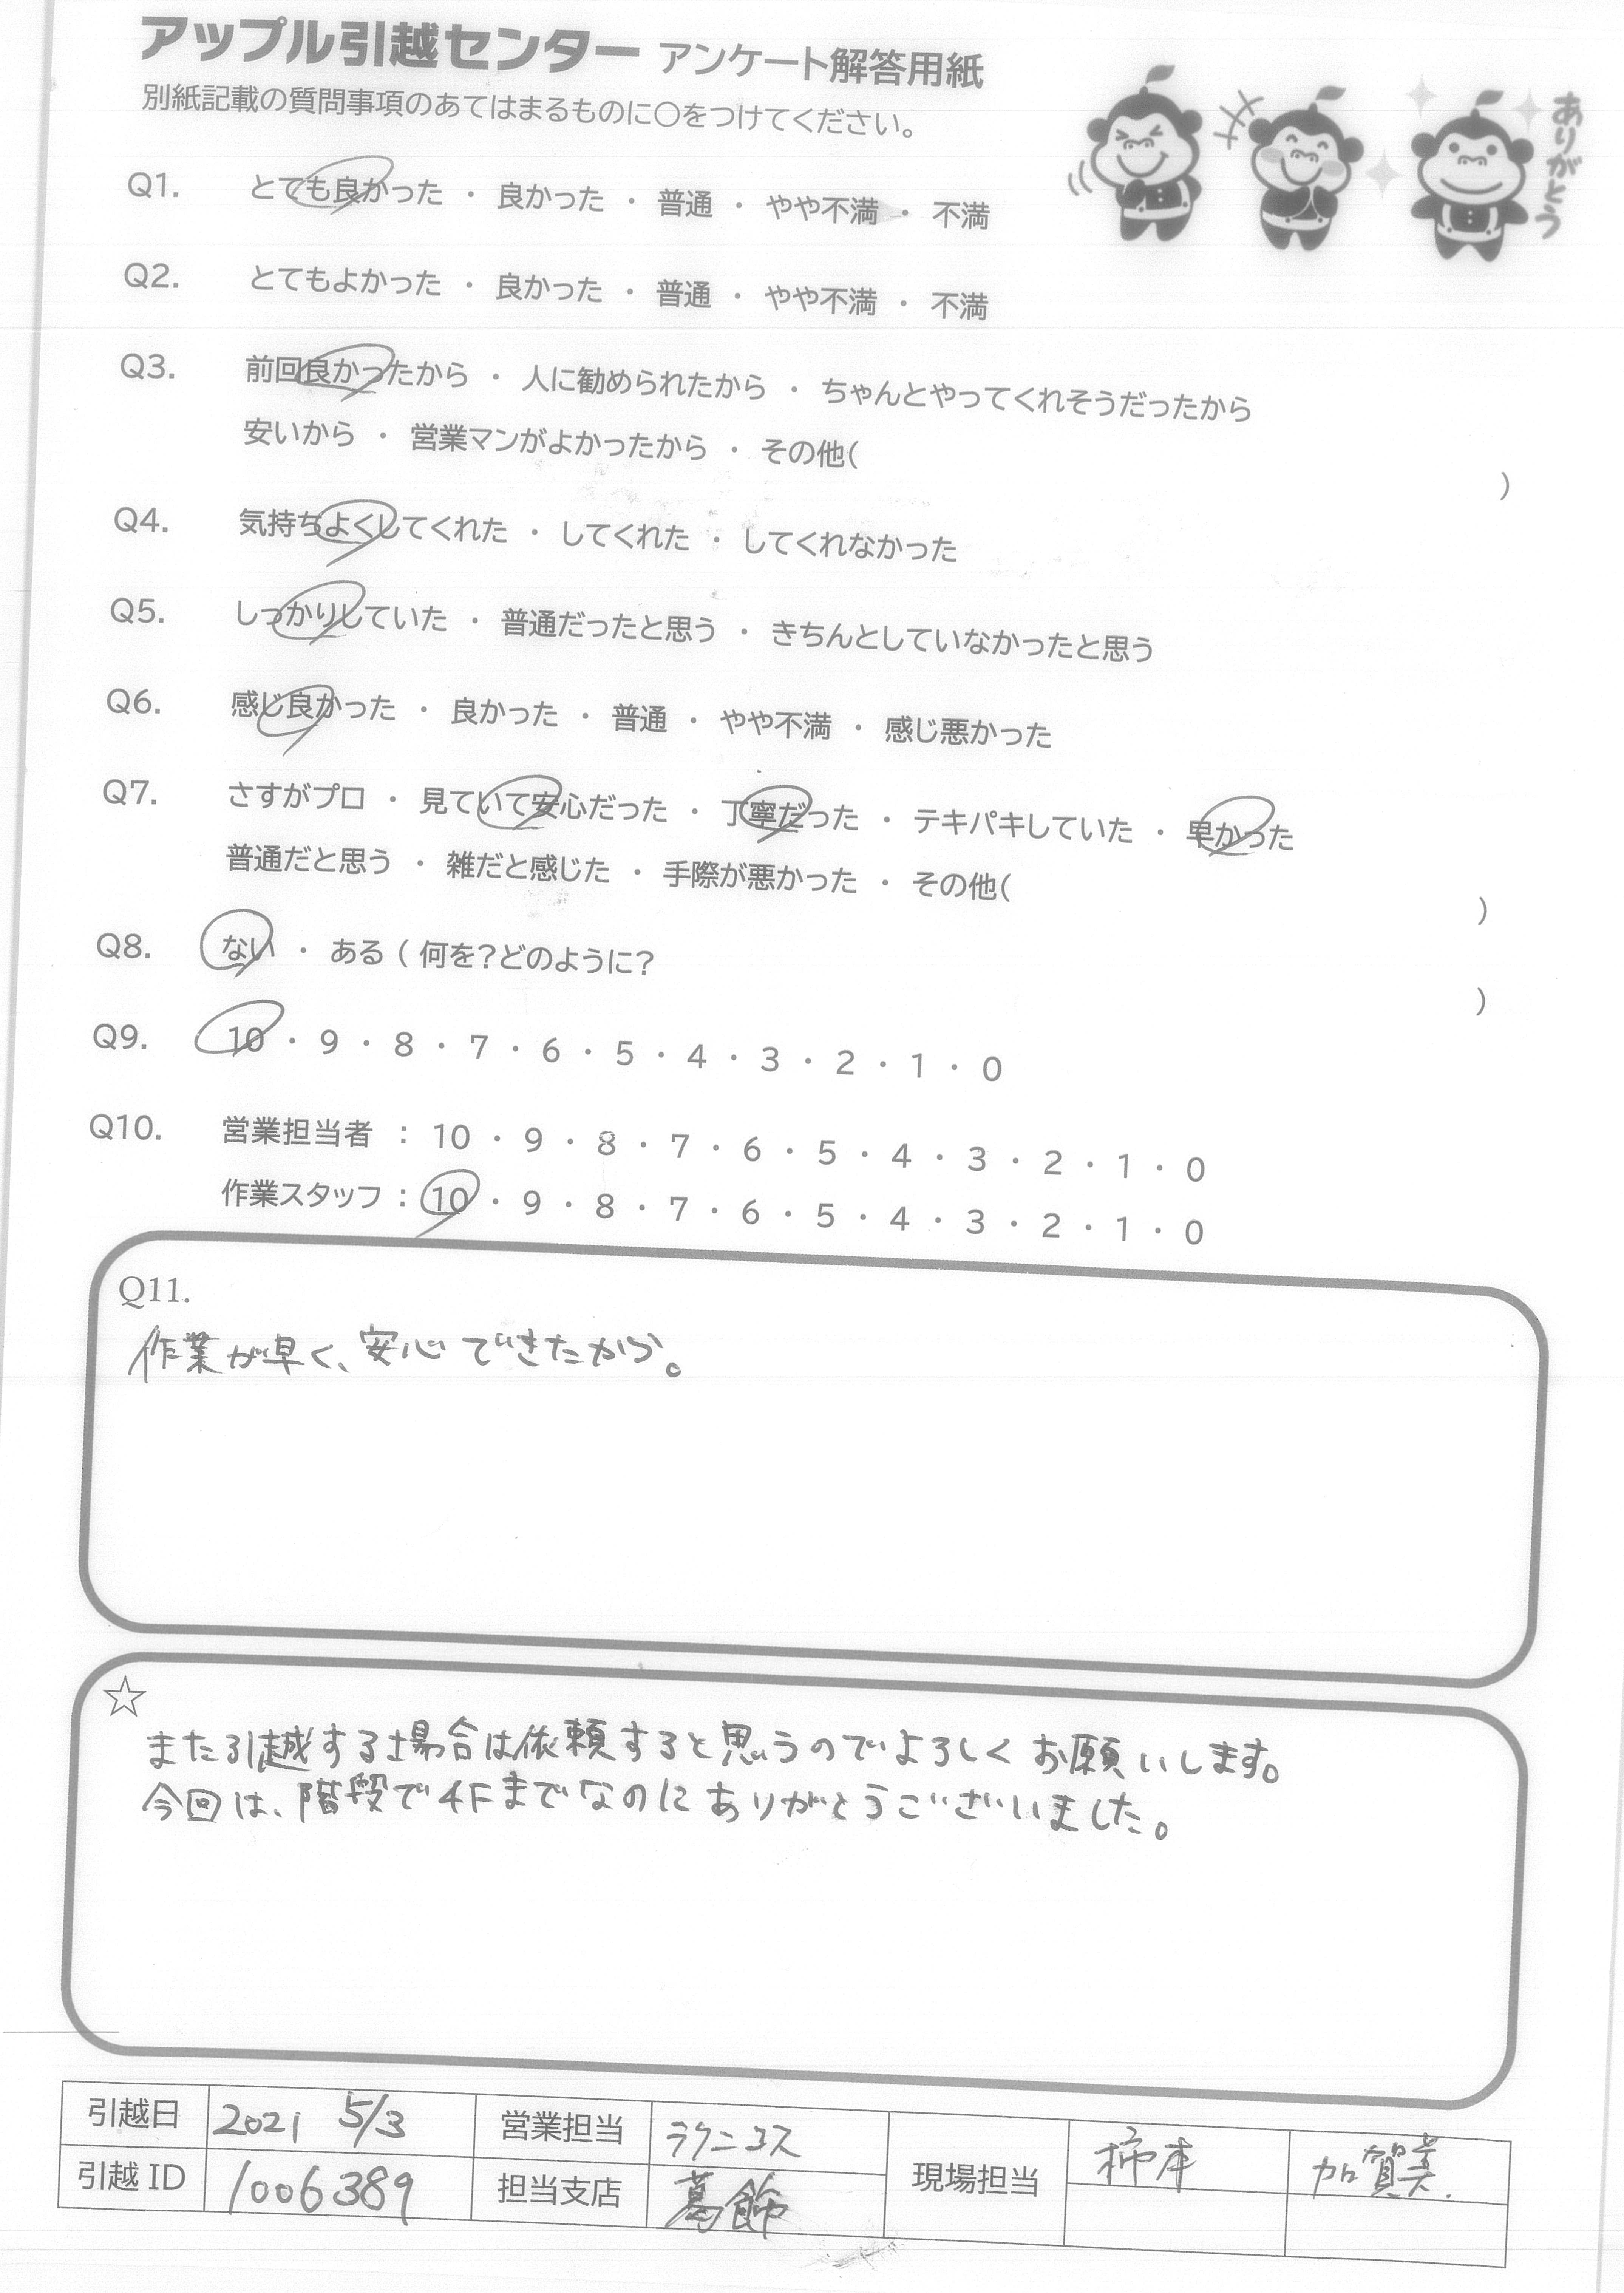 アップル引越センター アンケート解答用紙
別紙記載の質問事項のあてはまるものに○をつけてください。
ありがとう
Q1. とても良かった ・ 良かった ・ 普通 ・ やや不満 ・ 不満
Q2. とてもよかった ・ 良かった ・ 普通 ・ やや不満 ・ 不満
Q3. 前回良かったから ・ 人に勧められたから ・ ちゃんとやってくれそうだったから
安いから ・ 営業マンがよかったから ・ その他( )
Q4. 気持ちよくしてくれた ・ してくれた ・ してくれなかった
Q5. しっかりしていた ・ 普通だったと思う ・ きちんとしていなかったと思う
Q6. 感じ良かった ・ 良かった ・ 普通 ・ やや不満 ・ 感じ悪かった
Q7. さすがプロ ・ 見ていて安心だった ・ 丁寧だった ・ テキパキしていた ・ 早かった
普通だと思う ・ 雑だと感じた ・ 手際が悪かった ・ その他( )
Q8. ない ・ ある ( 何を?どのように? )
Q9. 10 ・ 9 ・ 8 ・ 7 ・ 6 ・ 5 ・ 4 ・ 3 ・ 2 ・ 1 ・ 0
Q10. 営業担当者 : 10 ・ 9 ・ 8 ・ 7 ・ 6 ・ 5 ・ 4 ・ 3 ・ 2 ・ 1 ・ 0
作業スタッフ : 10 ・ 9 ・ 8 ・ 7 ・ 6 ・ 5 ・ 4 ・ 3 ・ 2 ・ 1 ・ 0
Q11.
作業が早く、安心できたから。
☆
また引越する場合は依頼すると思うのでよろしくお願いします。
今回は、階段で4Fまでなのにありがとうございました。
引越日 2021 5/3 営業担当 ラクニコス 現場担当 柿本 加賀美.
引越 ID 1006389 担当支店 葛飾